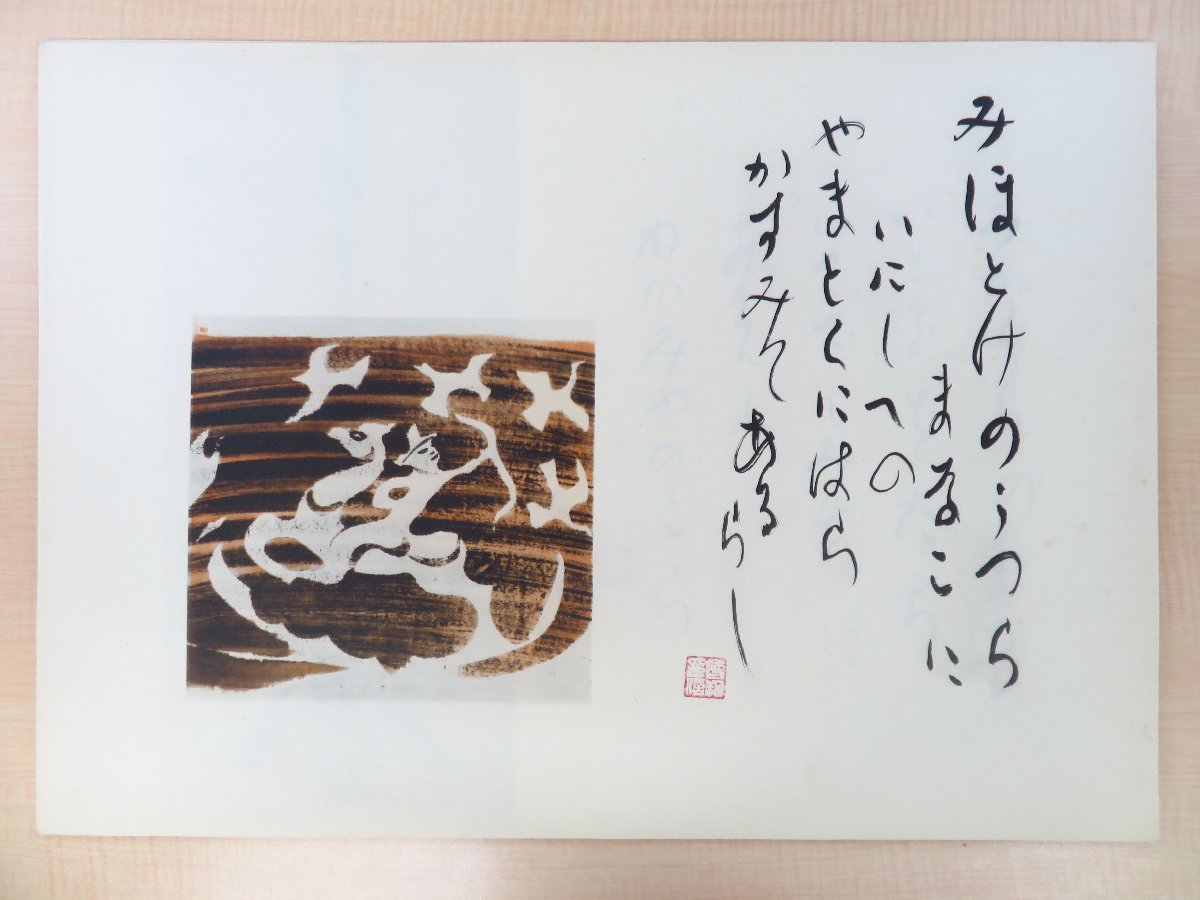 みほとけのうつら
まなこに
いにしへの
やまとくにはら
かすみてあるらし